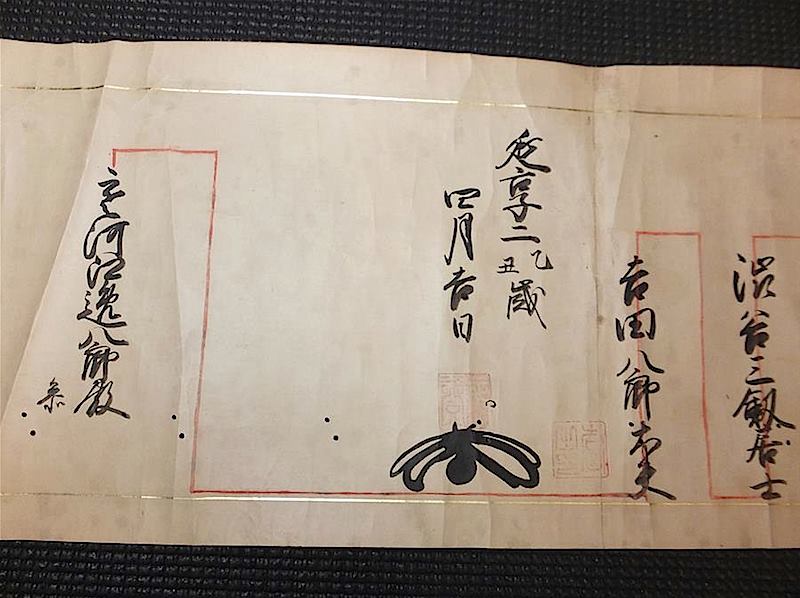 渋谷三剱居士
吉田八郎太夫
延享二乙丑歳
四月吉日
寒河江逸八郎殿
参